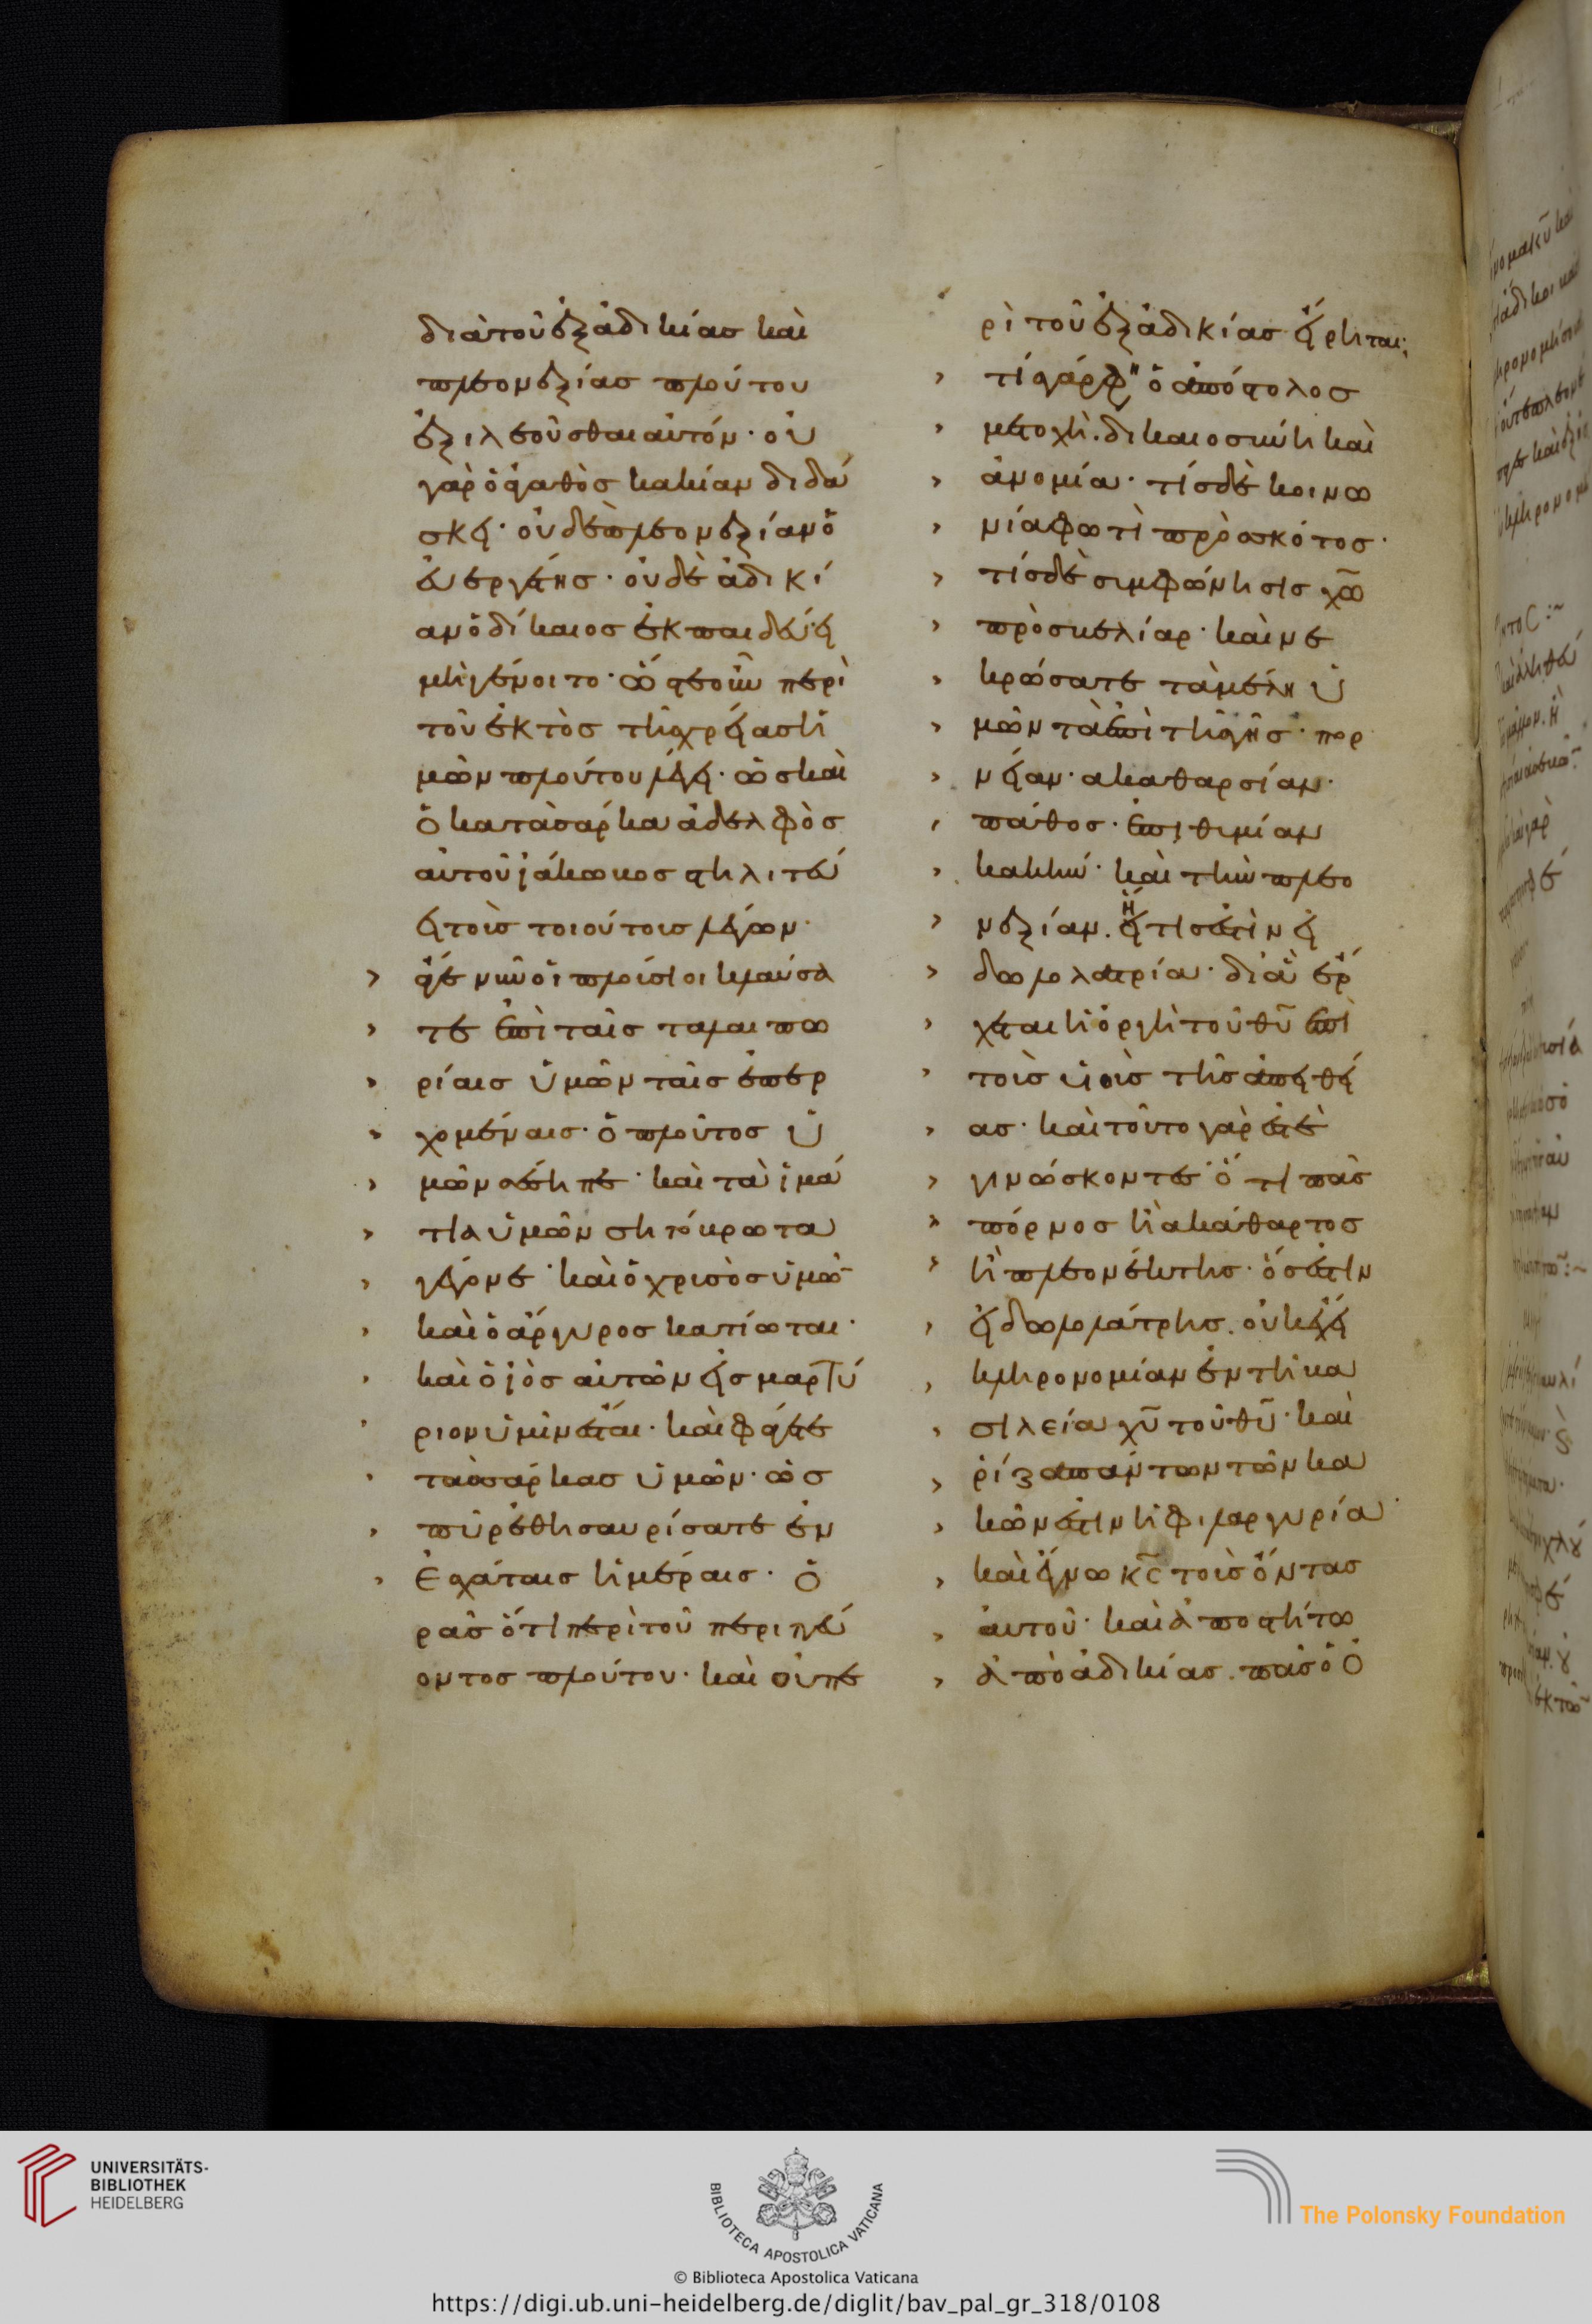 διὰ τοῦ ἐξ ἀδικίας καὶ
πλεονεξίας πλούτου
ἐξιλεοῦσθαι αὐτόν· οὐ
γὰρ ὁ ἀγαθὸς κακίαν διδά
σκει· οὐδὲ πλεονεξίαν ὁ
εὐεργέτης· οὐδὲ ἀδικί
αν ὁ δίκαιος ἐκπαιδεύει
μὴ γένοιτο· ὥστε οὖν περὶ
τοῦ ἐκτὸς τῆς χρείας ἡ
μῶν πλούτου λέγει· ὡς καὶ
ὁ κατὰ σάρκα ἀδελφὸς
αὐτοῦ ἰάκωβος στηλιτεύ
ει τοῖς τοιούτοις λέγων·
› ἄγε νῦν οἱ πλούσιοι κλαύσα
› τε ἐπὶ ταῖς ταλαιπω
› ρίαις ὑμῶν ταῖς ἐπερ
› χομέναις· ὁ πλοῦτος ὑ
› μῶν σέσηπε· καὶ τὰ ἱμά
› τια ὑμῶν σητόβρωτα
› γέγονε· καὶ ὁ χρυσὸς ὑμῶ̅
› καὶ ὁ ἄργυρος κατίωται·
› καὶ ὁ ἰὸς αὐτῶν εἰς μαρτύ
› ριον ὑμῖν ἔσται· καὶ φάγεται
› τὰς σάρκας ὑμῶν· ὡς
› πῦρ ἐθησαυρίσατε ἐν
› ἐσχάταις ἡμέραις· ὁ
ρᾶς ὅτι περὶ τοῦ περιττεύ
οντος πλούτου· καὶ οὐ πε
ρὶ τοῦ ἐξ ἀδικίας εἴρηται;
› τί γάρ φη ὁ ἀπόστολος
› μετοχὴ· δικαιοσύνη καὶ
› ἀνομία· τίς δὲ κοινω
› νία φωτὶ πρὸς σκότος·
› τίς δὲ συμφώνησις χ̅ω̅
› πρὸς βελίαρ· καὶ νε
› κρώσατε τὰ μέλη ὑ
› μῶν τὰ ἐπὶ τῆς γῆς· πορ
› νείαν· ακαθαρσίαν·
› πάθος· ἐπιθυμίαν
› κακήν· καὶ τὴν πλεο
› νεξίαν. ἥτις ἐστὶν εἰ
› δωλολατρία· δι ἃ ἔρ
› χεται ἡ ὀργὴ τοῦ θ̅υ̅ ἐπὶ
› τοὺς υἱοὺς τῆς ἀπειθεί
› ας· καὶ τοῦτο γὰρ ἐστὲ
› γινώσκοντες ὅτι πᾶς
› πόρνος ἢ ακάθαρτος
› ἢ πλεονέκτης· ὅς ἐστιν
› εἰδωλολάτρης. οὐκ ἔχει
› κληρονομίαν ἐν τῆ βα
› σιλεία χ̅υ̅ τοῦ θ̅υ̅· καὶ
› ρίζα πάντων τῶν κα
› κῶν ἐστιν ἡ φιλαργυρία·
› καὶ ἔγνω κ̅ς̅ τοὺς ὄντας
› αὐτοῦ· καὶ ἀποστήτω
› ἀπὸ ἀδικίας· πᾶς ὁ ὀ
UNIVERSITÄTS-
BIBLIOTHEK
HEIDELBERG
BIBLIOTECA APOSTOLICA VATICANA
The Polonsky Foundation
© Biblioteca Apostolica Vaticana
https://digi.ub.uni-heidelberg.de/diglit/bav_pal_gr_318/0108